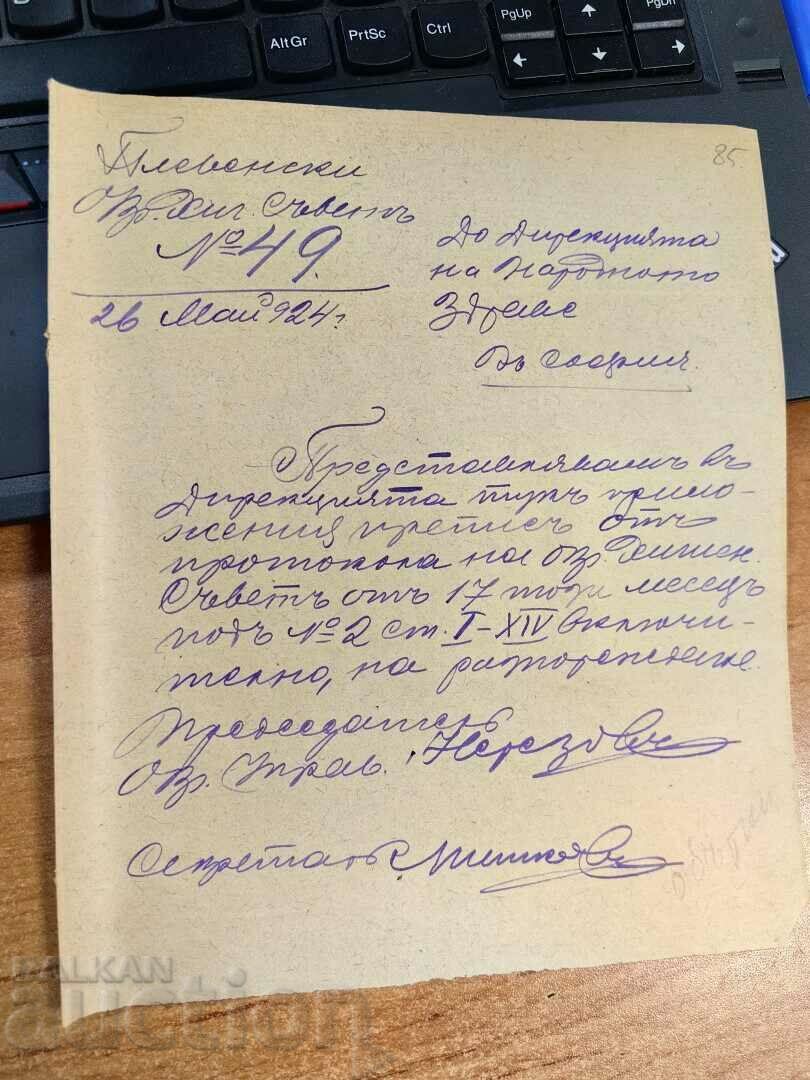 AltGr
PrtSc
Ctrl
PgUp
PgDn
85.
Плевенски
Окр. Хиг. Съветъ
№ 49.
26 Май 924 г.
До Дирекцията
на Народното
Здраве
Въ София.
Представлявамъ въ
Дирекцията тукъ прило-
жения преписъ отъ
протокола на окр. Хигиен.
Съветъ отъ 17 този месецъ
подъ № 2 ст. I-XIV включи-
телно, на разпореждане.
Председатель
Окр. Управ.
Секретарь
BALKAN
auction